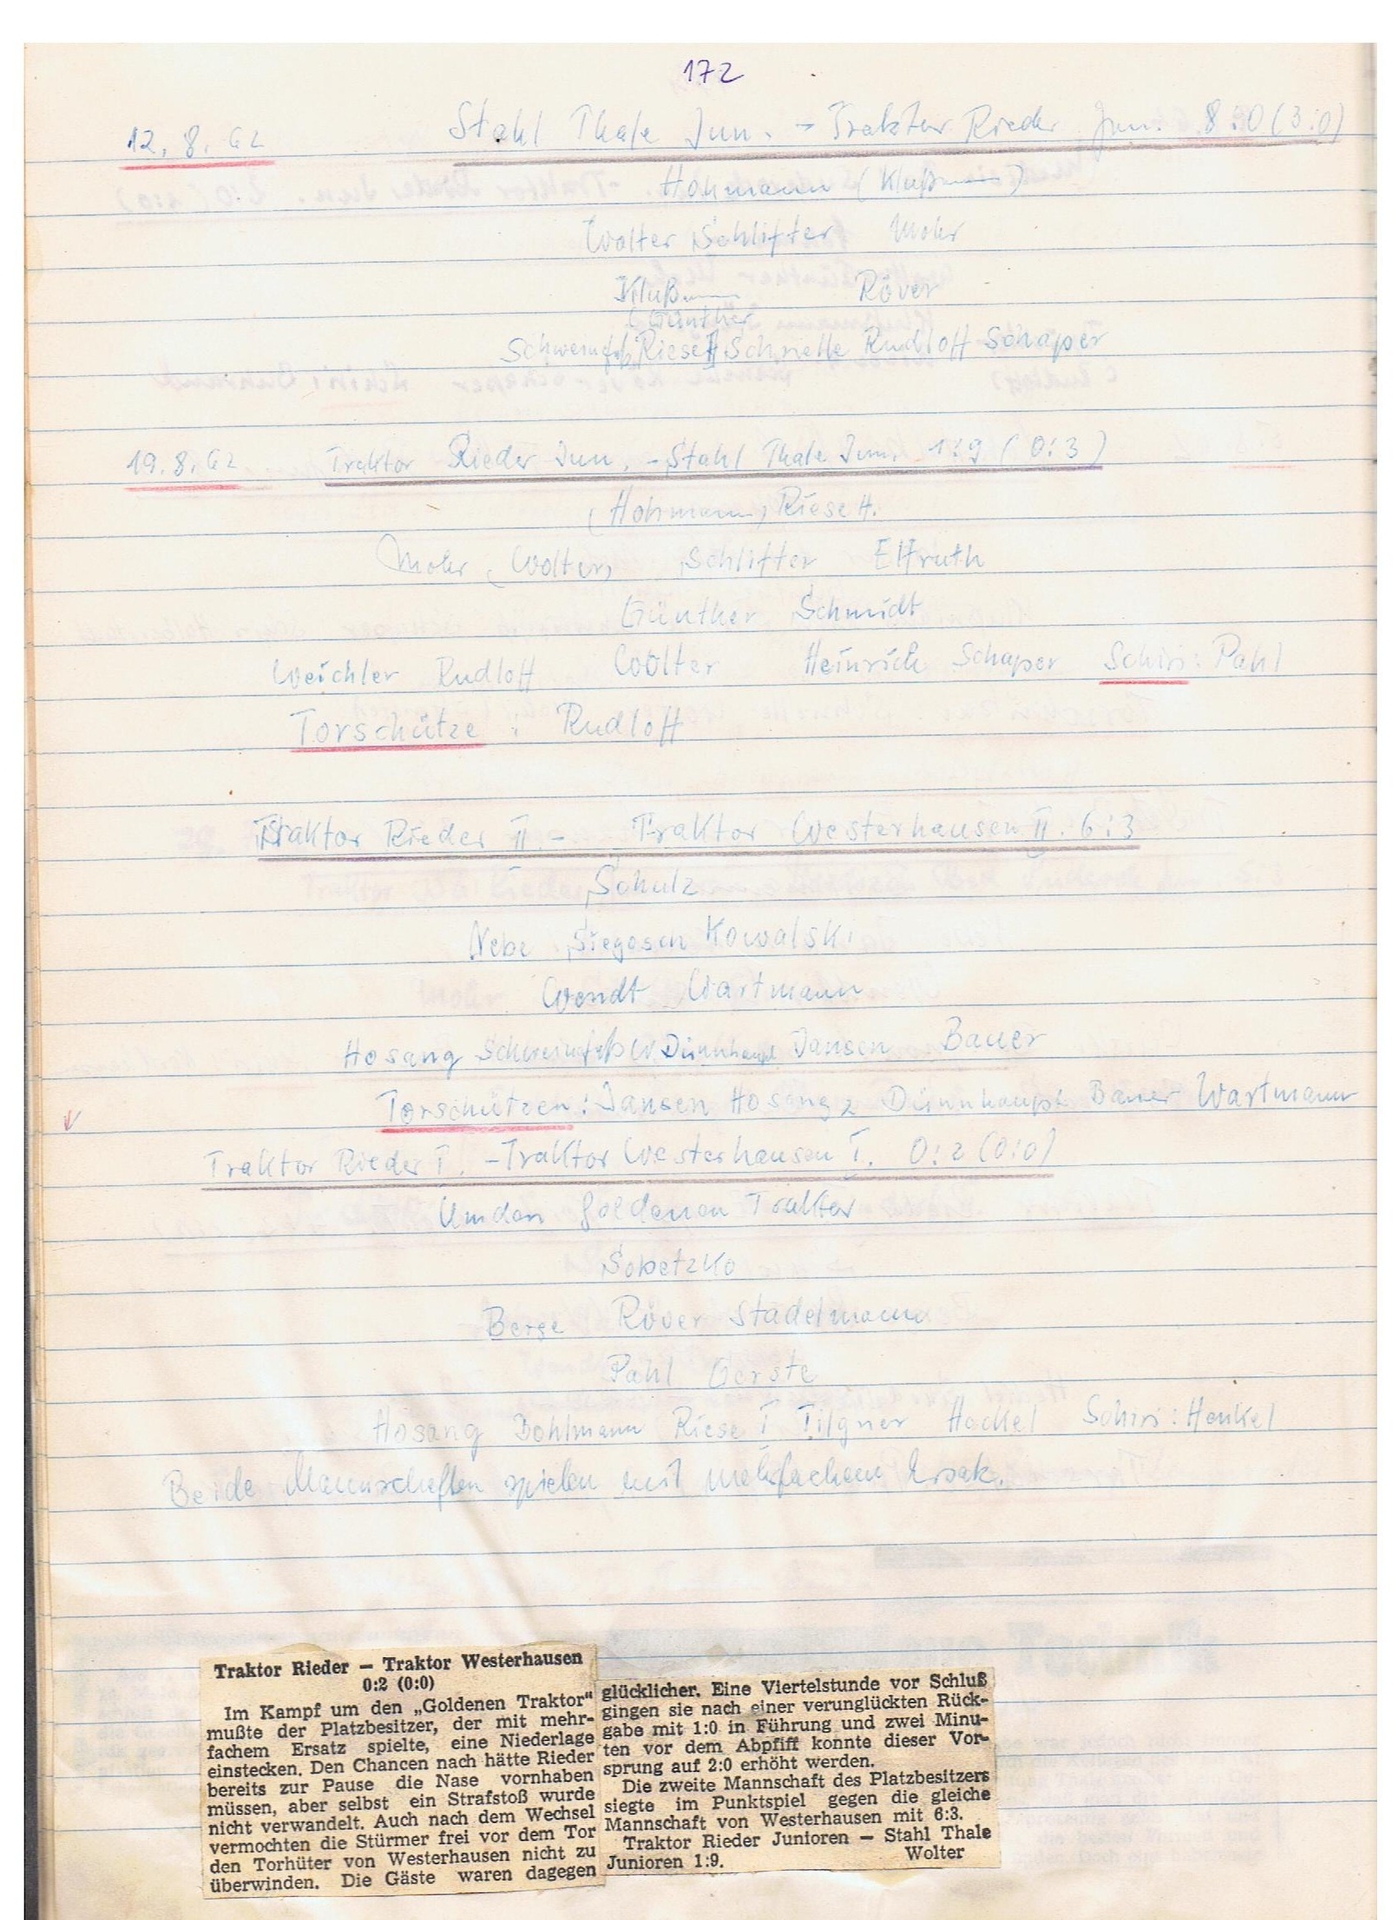 172
12.8.62 Stahl Thale Jun. - Traktor Rieder Jun. 8:0 (3:0)
Hohmann (Klußmann)
Wolter Schlifter Mohr
Klußmann Röver
(Günther
Riese II Schnelle Rudloff Schaper
19.8.62 Traktor Rieder Jun. - Stahl Thale Jun. 1:9 (0:3)
(Hohmann) Riese H.
Mohr (Wolter) Schlifter Elfruth
Günther Schmidt
Weichler Rudloff Wolter Heinrich Schaper Schiri: Pahl
Torschütze: Rudloff
Traktor Rieder II - Traktor Westerhausen II. 6:3
Schulz
Nebe Siegosch Kowalski
Wendt Wartmann
Hosang Schweinefuß W. Dünnhaupt Jansen Bauer
Torschützen: Jansen Hosang 2 Dünnhaupt Bauer Wartmann
Traktor Rieder I. - Traktor Westerhausen I. 0:2 (0:0)
Um den goldenen Traktor
Sobetzko
Berge Röver Stadelmann
Pahl Gerste
Hosang Dohlmann Riese I Tilgner Hackel Schiri: Henkel
Beide Mannschaften spielen mit mehrfachem Ersatz.
Traktor Rieder – Traktor Westerhausen
0:2 (0:0)
Im Kampf um den „Goldenen Traktor"
mußte der Platzbesitzer, der mit mehr-
fachem Ersatz spielte, eine Niederlage
einstecken. Den Chancen nach hätte Rieder
bereits zur Pause die Nase vornhaben
müssen, aber selbst ein Strafstoß wurde
nicht verwandelt. Auch nach dem Wechsel
vermochten die Stürmer frei vor dem Tor
den Torhüter von Westerhausen nicht zu
überwinden. Die Gäste waren dagegen
glücklicher. Eine Viertelstunde vor Schluß
gingen sie nach einer verunglückten Rück-
gabe mit 1:0 in Führung und zwei Minu-
ten vor dem Abpfiff konnte dieser Vor-
sprung auf 2:0 erhöht werden.
Die zweite Mannschaft des Platzbesitzers
siegte im Punktspiel gegen die gleiche
Mannschaft von Westerhausen mit 6:3.
Traktor Rieder Junioren – Stahl Thale
Junioren 1:9. Wolter